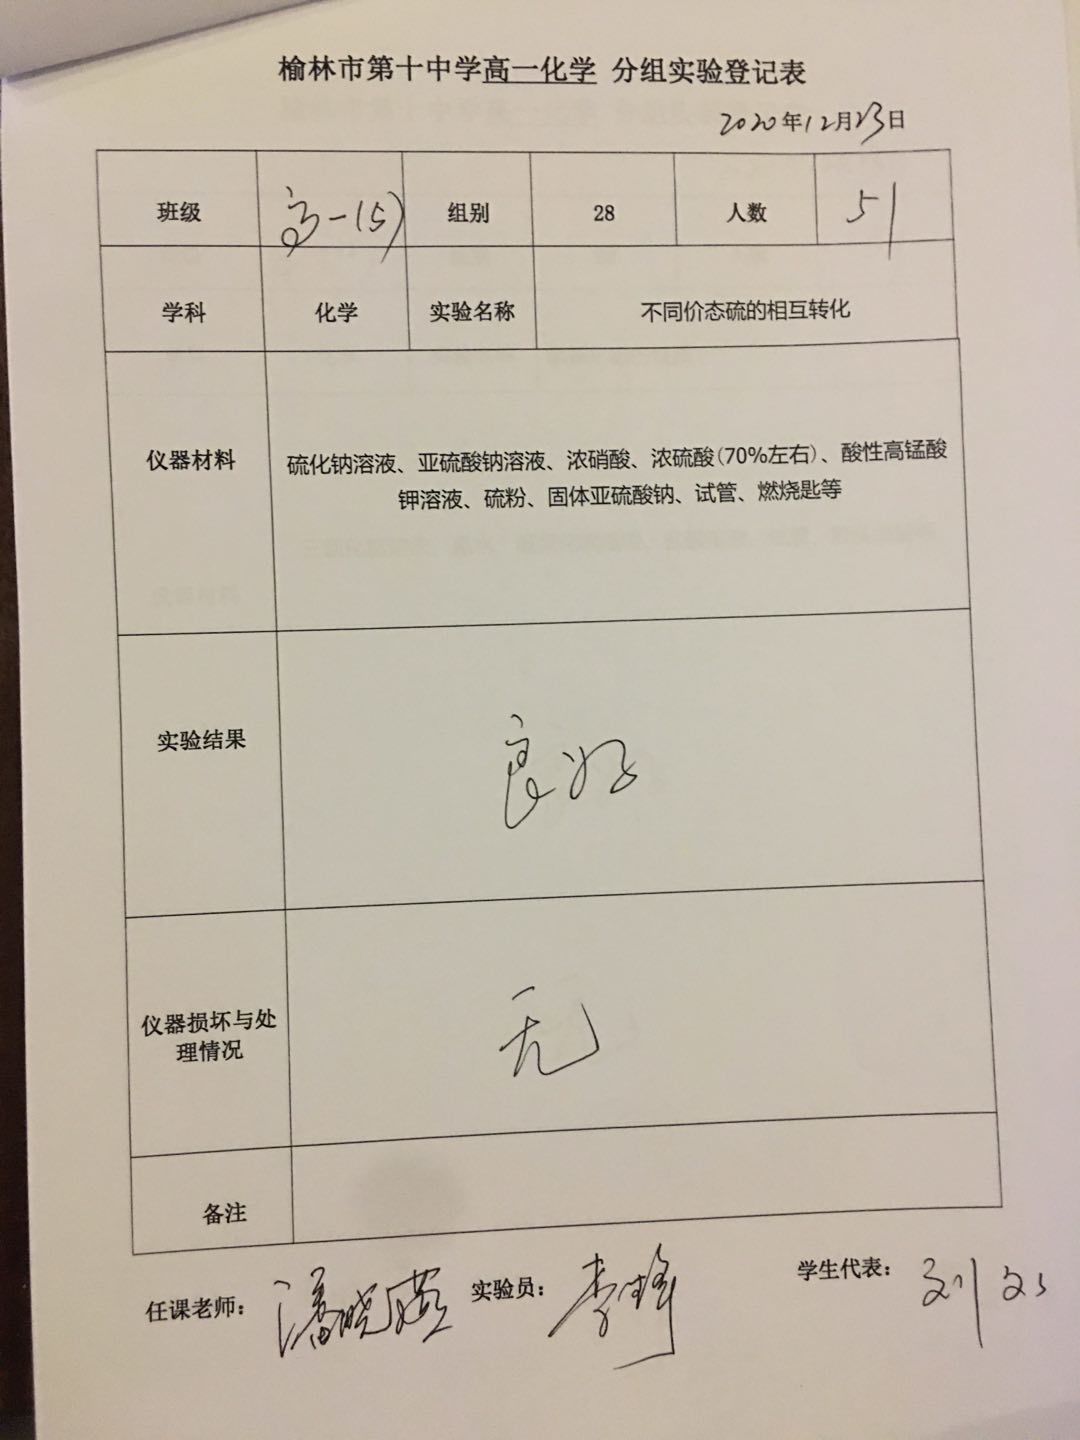 榆林市第十中学高一化学 分组实验登记表
2020年12月23日
班级 高一(5) 组别 28 人数 51
学科 化学 实验名称 不同价态硫的相互转化
仪器材料
硫化钠溶液、亚硫酸钠溶液、浓硝酸、浓硫酸(70%左右)、酸性高锰酸
钾溶液、硫粉、固体亚硫酸钠、试管、燃烧匙等
实验结果 良好
仪器损坏与处
理情况
无
备注
任课老师: 潘晓 实验员: 李 学生代表: 刘